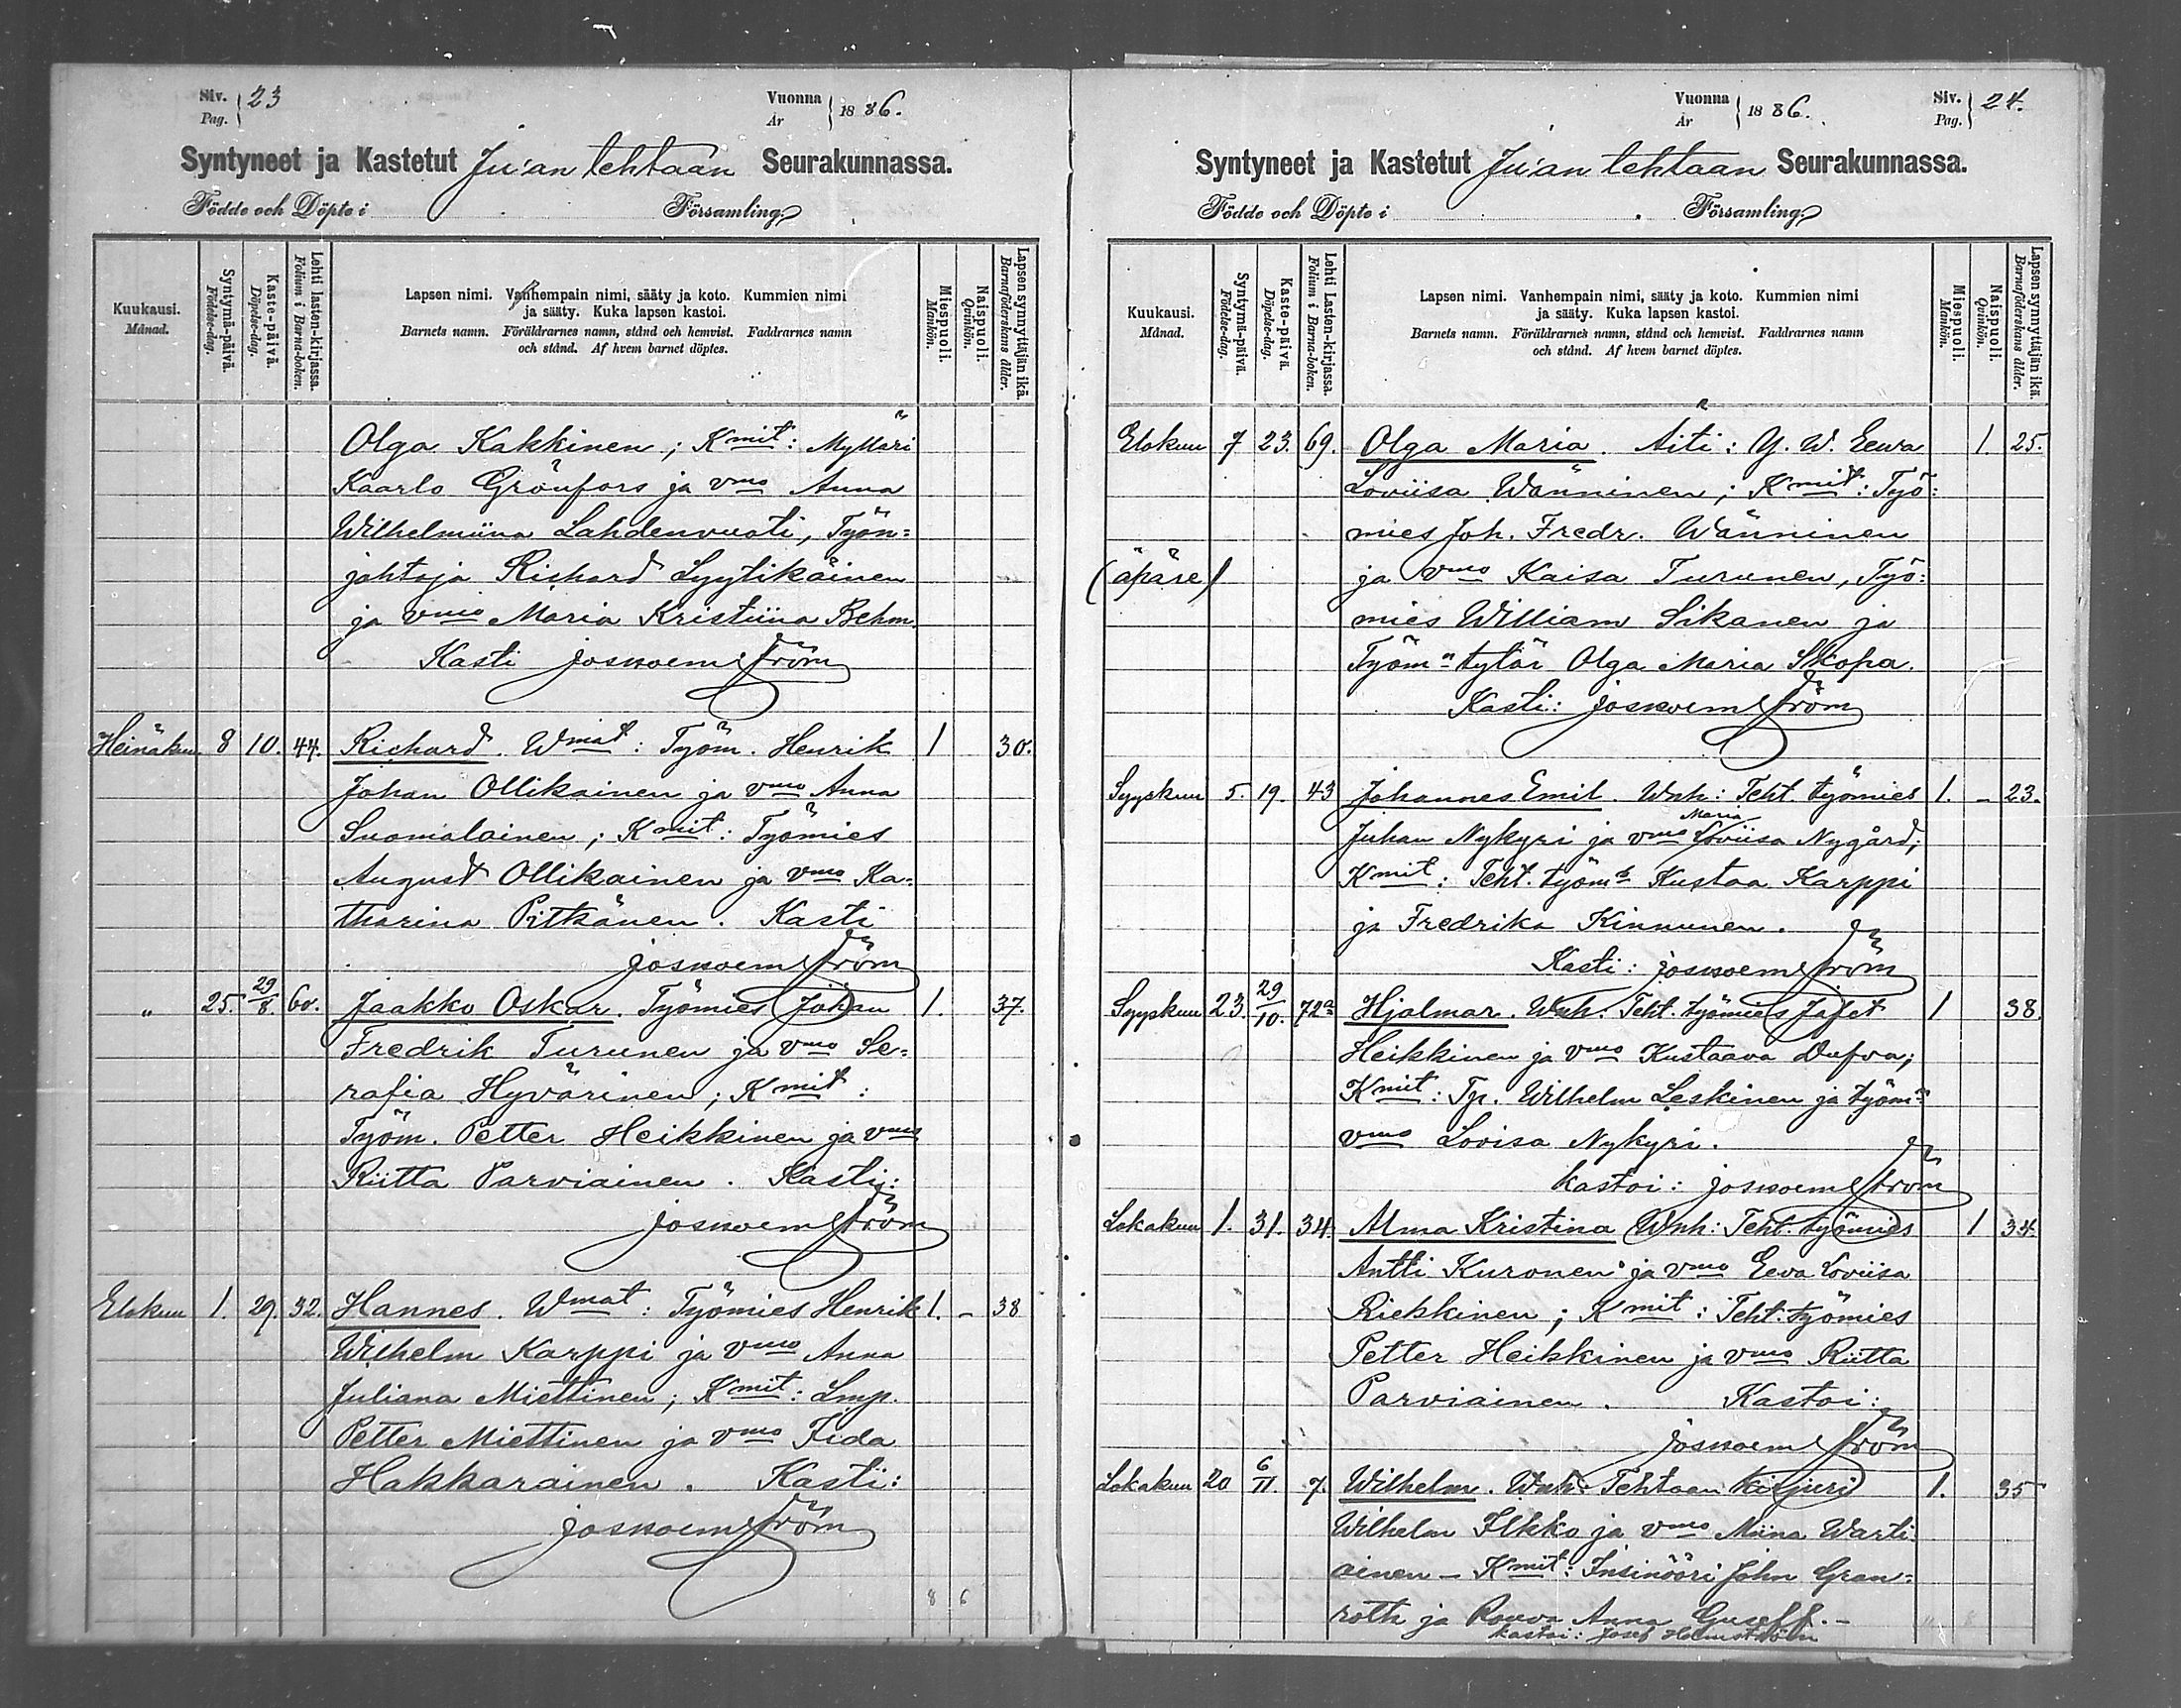 Siv. Pag. 23
Vuonna År 1886.
Syntyneet ja Kastetut Ju'an tehtaan Seurakunnassa.
Födde och Döpte i Församling.
Kuukausi. Månad.
Syntymä-päivä. Födelse-dag.
Kaste-päivä. Döpelse-dag.
Lehti lasten-kirjassa. Folium i Barna-boken.
Lapsen nimi. Vanhempain nimi, sääty ja koto. Kummien nimi
ja sääty. Kuka lapsen kastoi.
Barnets namn. Föräldrarnes namn, stånd och hemvist. Faddrarnes namn
och stånd. Af hvem barnet döptes.
Miespuoli. Mankön.
Naispuoli. Qvinkön.
Lapsen synnyttäjän ikä. Barnaföderskans ålder.
Olga Kakkinen; Kmit: Mylläri
Kaarlo Grönfors ja vmo Anna
Wilhelmiina Lahdenvuoti, Työn=
johtaja Richard Lyytikäinen
ja vmo Maria Kristiina Behm.
Kasti
Heinäkuu 8 10. 44. Richard. Wmat: Työm. Henrik 1 30.
Johan Ollikainen ja vmo Anna
Suomalainen; Kmit: Työmies
August Ollikainen ja vmo Ka=
tharina Pitkänen. Kasti
" 25. 29/8. 60. Jaakko Oskar. Työmies Johan 1. 37.
Fredrik Turunen ja vmo Se=
rafia Hyvärinen; Kmit:
Työm. Petter Heikkinen ja vmo
Riitta Parviainen. Kasti:
Elokuu 1. 29. 32. Hannes. Wmat: Työmies Henrik 1. - 38
Wilhelm Karppi ja vmo Anna
Juliana Miettinen; Kmit: Lmp.
Petter Miettinen ja vmo Fida
Hakkarainen. Kasti:
8 6
Vuonna År 1886.
Siv. Pag. 24.
Syntyneet ja Kastetut Ju'an tehtaan Seurakunnassa.
Födde och Döpte i Församling.
Kuukausi. Månad.
Syntymä-päivä. Födelse-dag.
Kaste-päivä. Döpelse-dag.
Lehti Lasten-kirjassa. Folium i Barna-boken.
Lapsen nimi. Vanhempain nimi, sääty ja koto. Kummien nimi
ja sääty. Kuka lapsen kastoi.
Barnets namn. Föräldrarnes namn, stånd och hemvist. Faddrarnes namn
och stånd. Af hvem barnet döptes.
Miespuoli. Mankön.
Naispuoli. Qvinkön.
Lapsen synnyttäjän ikä. Barnaföderskans ålder.
Elokuu 7 23. 69. Olga Maria. Äiti: Y. W. Eewa 1. 25.
Loviisa Wänninen; Kmit: Työ=
mies Joh. Fredr. Wänninen
(äpäre) ja vmo Kaisa Turunen, Työ=
mies William Sikanen ja
Työm:n tytär Olga Maria Skopa.
Kasti:
Syyskuu 5. 19. 43 Johannes Emil. Wnh: Teht. työmies 1. - 23.
Juhan Nykyri ja vmo Maria Loviisa Nygård;
Kmit: Teht. työm:s Kustaa Karppi
ja Fredrika Kinnunen.
Kasti:
Syyskuu 23. 29/10. 72a Hjalmar. Wnh. Teht. työmies Jafet 1 38.
Heikkinen ja vmo Kustaava Dufva;
Kmit: Tp. Wilhelm Leskinen ja työm:n
vmo Lovisa Nykyri.
Kastoi:
Lokakuu 1. 31. 34. Alma Kristina Wnh: Teht. työmies 1 34.
Antti Kuronen ja vmo Eeva Loviisa
Riekkinen; Kmit: Teht. työmies
Petter Heikkinen ja vmo Riitta
Parviainen. Kastoi:
Lokakuu 20 6/11. 7. Wilhelm. Wnh: Tehtaan kirjuri 1. 35
Wilhelm Ilkko ja vmo Miina Warti
ainen - Kmit: Insinööri John Gran=
roth ja Rouva Anna Guseff. -
Kastoi: Josef Holmström